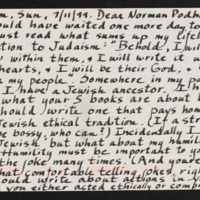 m, Sun, 7/11/99. Dear Norman Podh
ould have waited one more day to
ust read what sums up my lifel
tion to Judaism: "Behold, I wil
w within them, & I will write it
hearts, & I will be their God,
my people." Somewhere in my pa
I have a Jewish ancestor. If h
what your 5 books are about
should write one that pays hom
Jewish ethical tradition. (If a str
be bossy, who can?) Incidentally I
Jewish but what about my humil
Humility must be important to y
the joke many times. (And yond
hat comfortable telling jokes, righ
would write about actions in
you either acted ethically or comp